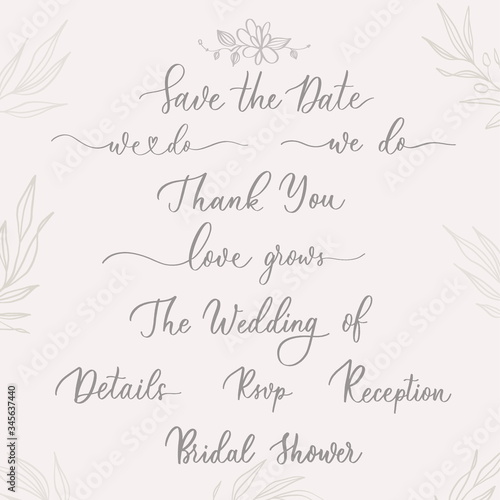 Save the Date
we do we do
Thank You
love grows
The Wedding of
Details Rsvp Reception
Bridal Shower
Adobe Stock | #345637440